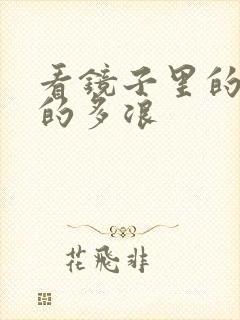 看镜子里的
的多浪
花飛非